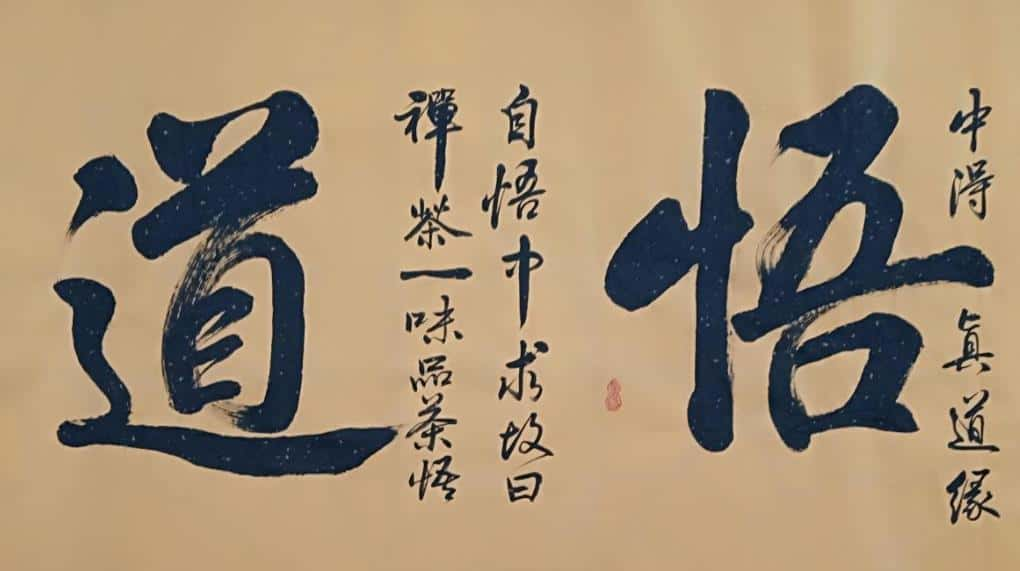 中得真道緣
悟
自悟中求故曰
禪茶一味品茶悟
道